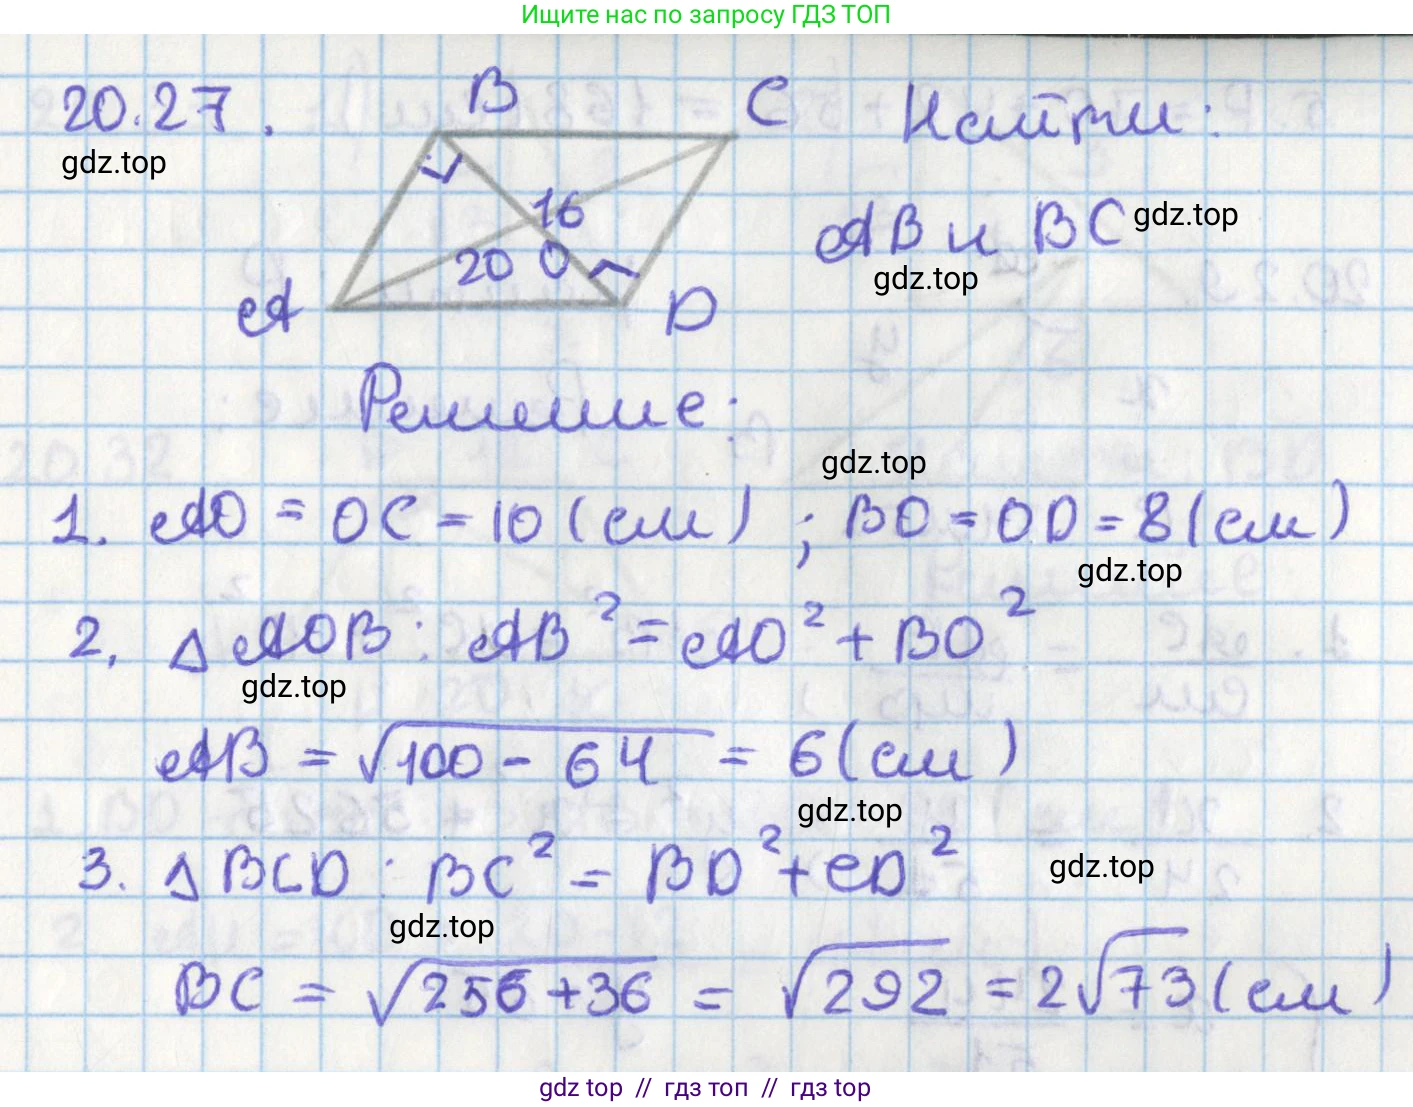 Ищите нас по запросу ГДЗ ТОП
20.27.
gdz.top
B
C
Найти:
16
20
O
A
D
AB и BC
gdz.top
gdz.top
Решение:
gdz.top
1. AO = OC = 10 (см) ; BO = OD = 8 (см)
gdz.top
2. △ AOB : AB² = AO² + BO²
gdz.top
AB = √100 - 64 = 6 (см)
gdz.top
3. △ BCD : BC² = BD² + CD²
gdz.top
gdz.top
BC = √256 + 36 = √292 = 2√73 (см)
gdz.top // гдз топ // гдз top